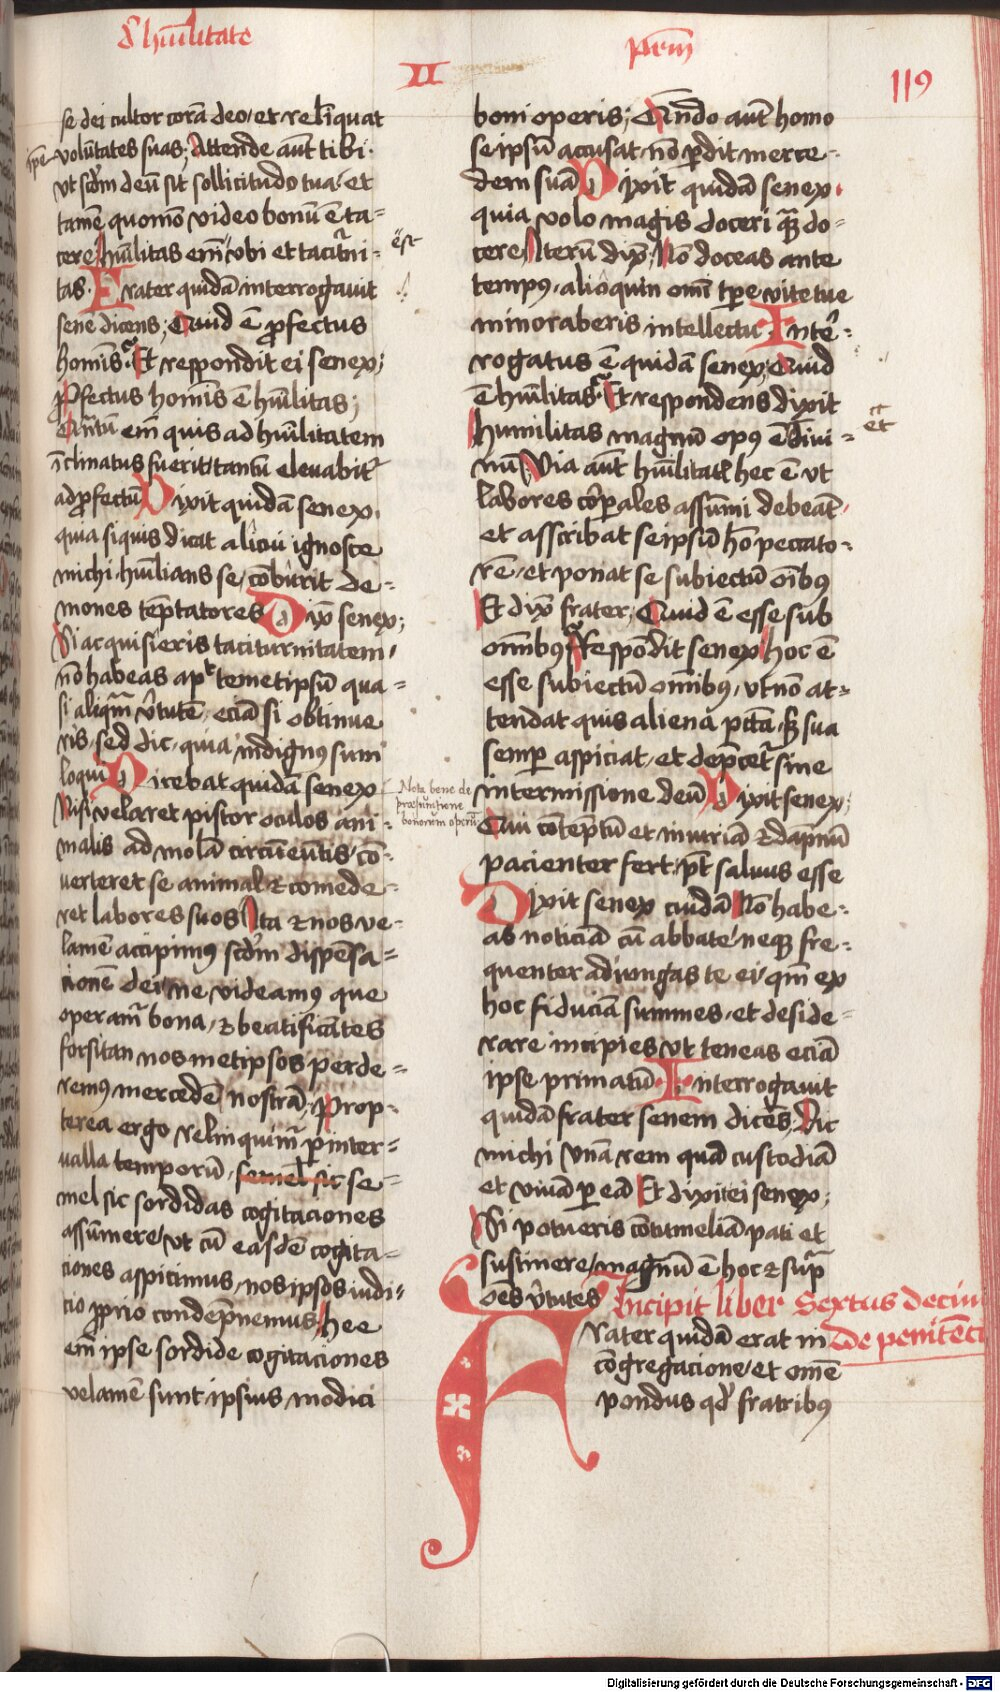 d' hūilitate
Prm̄
II
119
se dei cultor corā deo / et relīquat
ipse voluntates suas; Attende aūt tibi
vt scd'm deū sit sollicitudo tua / et
tamē quomō video bonū ē ta=
cere / hūilitas em̄ vbi et tacit'ni=
est
tas · Frater quidā interrogauit
senē dicens; Quid ē ꝓfectus
hominis? Et respondit ei senex;
Ꝓfectus hominis ē hūilitas;
Quantū em̄ quis ad hūilitatem
īclinatus fuerit / tantū eleuabit'
ad ꝓfectū Dixit quidā senex
quia siquis dicat alicui ignosce
michi · hūilians se / cōburit de=
mones tēptatores Dix̄ senex;
Si acquisieris taciturnitatem /
nō habeas apt temetipsū qua=
si aliqm̄ v'tutē / eciā si obtinue
ris / sed dic / quia indignus sum
loqui Dicebat quidā senex
Nisi velaret pistor oculos ani=
malis ad molā circūeuntis / cō=
uerteret se animal et comede=
ret labores suos Ita et nos ve=
lamē accipimus scd'm dispēsa=
cionē dei / ne videamus que
operam' bona / et beatificātes
forsitan nos metipsos perde=
remus mercedē nostrā; Prop=
terea ergo relinquim' p inter=
ualla temporū / semel sic se=
mel sic sordidas cogitaciones
assumere / vt cū easdē cogita=
ciones aspicimus / nos ipsos iudi=
cio ꝓprio condēpnemus / hee
em̄ ipse sordide cogitaciones
velamē sunt ipsius modici
Nota bene de
præsumtione
bonorum operum
boni operis; Qn̄do aūt homo
seipsū accusat / nō perdit merce=
dem suā Dixit quidā senex
quia volo magis doceri quā do=
cere / Iterū dix̄ / Nō doceas ante
tempus / alioquin omī tpe vite tue
minoraberis intellectu Inte=
rogatus ē quidā senex; Quid
ē hūilitas? Et respondens dixit
et
Humilitas magnū opus ē diui=
nū Via aūt hūilitatis hec ē vt
labores corpales assumi debeāt
et asscribat seipsū hō peccato=
rē / et ponat se subiectū oībus
Et dix̄ frater; Quid ē esse sub
omībus? Respondit senex hoc ē
esse subiectū omībus / vt nō at=
tendat quis aliena pctā / sed sua
semper aspiciat / et depcet' sine
intermissione deū Dixit senex;
Qui cōtēptū et iniuriā et dāpnū
pacienter fert / pt saluus esse
Dixit senex cuidā Nō habe=
as noticiā cū abbate / neqꝫ fre=
quenter adiungas te ei / qm̄ ex
hoc fiduciā summes / et deside=
rare incipies vt teneas eciā
ipse primatū Interrogauit
quidā frater senem dicēs; Dic
michi vnā rem quā custodiā
et viuā per eā Et dixit ei senex;
Si potueris cōtumeliā pati et
sustinere / magnū ē hoc et sup'
oēs v'tutes Incipit liber Sextus decim
Frater quidā erat in De penitēci
cōgregacione / et omē
pondus qd' fratribus
Digitalisierung gefördert durch die Deutsche Forschungsgemeinschaft - DFG